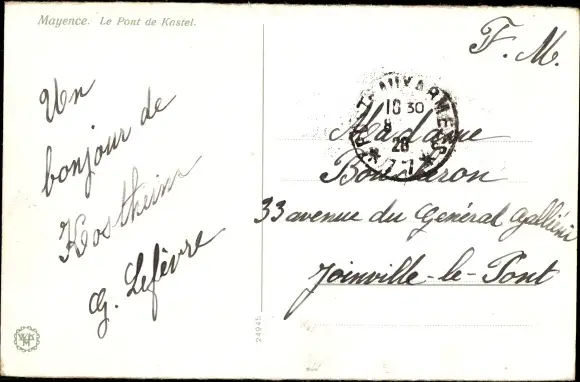 Mayence. Le Pont de Kastel.
Un
bonjour de
Kostheim
G. Lefèvre
F. M.
POSTE AUX ARMEES
10 30
8
26
* 77 *
Madame
33 avenue du Général Galliéni
Joinville-le-Pont
24945